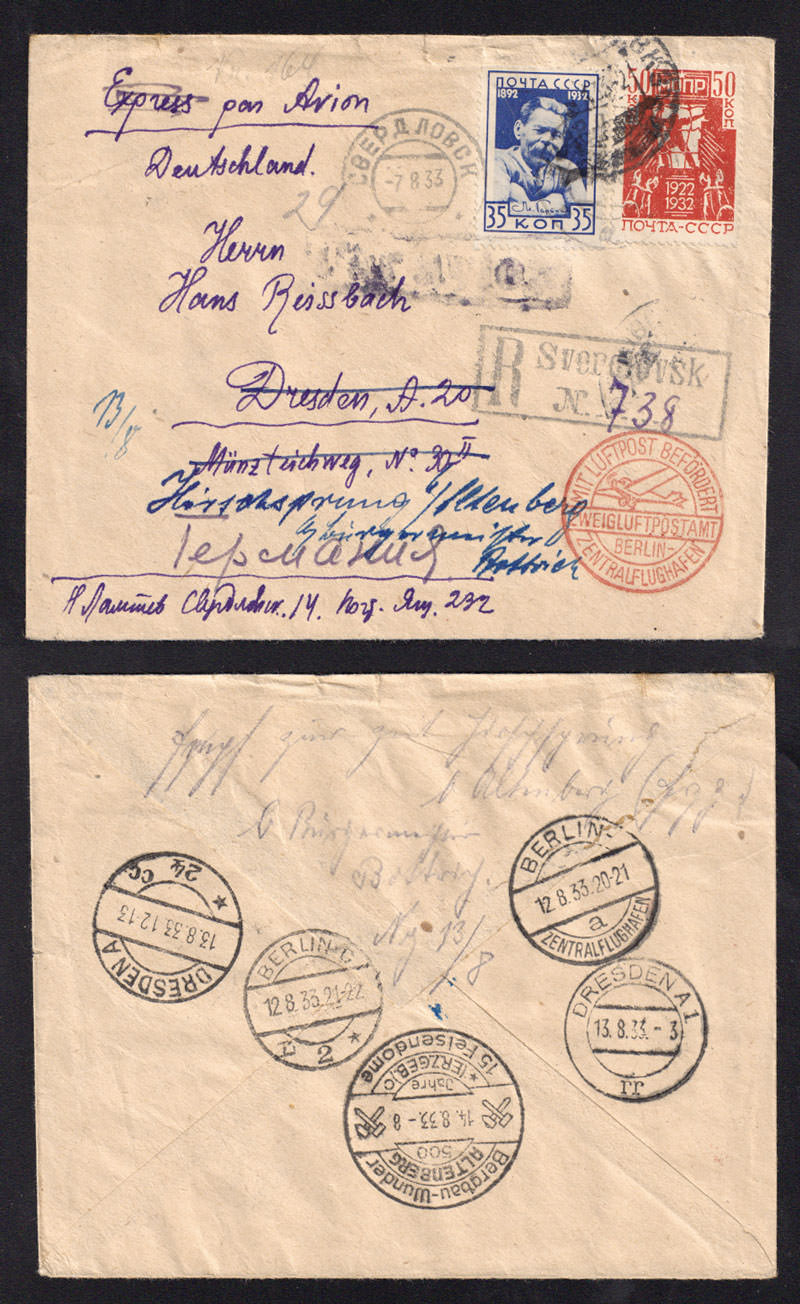 Express par Avion
Deutschland.
Herrn
Hans Reissbach
Dresden, A. 20
Münzteichweg, No 30 II
Hirschsprung Altenberg
bürgermeister
Bottrich
Германия
Свердловск. 14. Ящ. 232
29
13/8
СВЕРДЛОВСК
-7 8 33
ПОЧТА СССР
1892 1932
35 КОП 35
50 КОП
50 КОП
1922
1932
ПОЧТА-СССР
R Sverdlovsk
No 738
MIT LUFTPOST BEFÖRDERT
ZWEIGLUFTPOSTAMT
BERLIN-
ZENTRALFLUGHAFEN
zur Zeit Hirschsprung
b Altenberg
b Bürgermeister
Bottrich.
13/8
BERLIN-
12.8.33.20-21
a
ZENTRALFLUGHAFEN
DRESDEN A
13.8.33.12-13
* 24 cc
BERLIN C
12 8.33.21-22
2 *
DRESDEN A1
13.8.33.-3
rr
Bergbau-Wunder
ALTENBERG
500
14.8.33.-8
Jahre
* (ERZGEB.) c
15 Felsendome